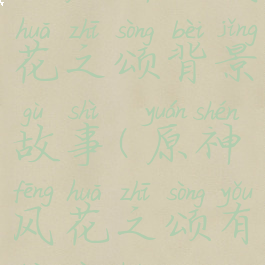 huā zhī sòng bèi jǐng
花之颂背景
gù shì yuán shén
故事(原神
fēng huā zhī sòng yǒu
风花之颂有